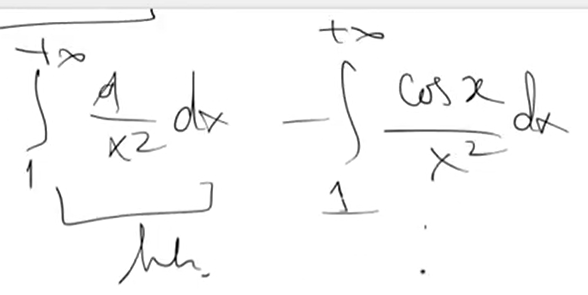 ∫₁^{+∞} 1/x² dx − ∫₁^{+∞} cos x/x² dx
hh.